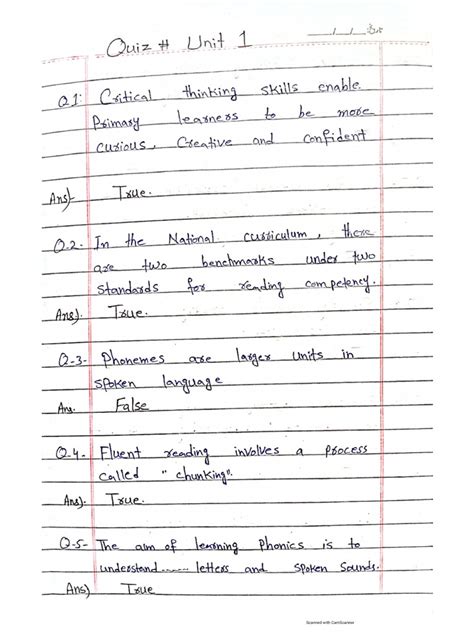 Quiz # Unit 1
Q1: Critical thinking skills enable
Primary learners to be more
curious, Creative and confident
Ans) True.
Q.2. In the National curriculum, there
are two benchmarks under two
standards for reading competency.
Ans). True.
Q-3- Phonemes are larger units in
spoken language
Ans. False
Q.4. Fluent reading involves a process
called "chunking".
Ans). True.
Q-5- The aim of learning Phonics is to
understand...... letters and spoken sounds.
Ans) True
Scanned with CamScanner